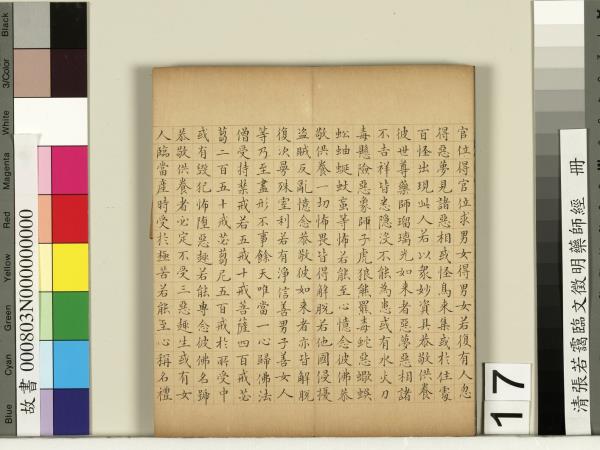 官位得官位求男女得男女若復有人忽
得惡夢見諸惡相或怪鳥來集或於住處
百怪出現此人若以衆妙資具恭敬供養
彼世尊藥師瑠璃光如來者惡夢惡相諸
不吉祥皆悉隱沒不能為患或有水火刀
毒懸險惡象師子虎狼熊羆毒蛇惡蠍蜈
蚣蚰蜒蚊蝱等怖若能至心憶念彼佛恭
敬供養一切怖畏皆得解脫若他國侵擾
盜賊反亂憶念恭敬彼如來者亦皆解脫
復次曼殊室利若有淨信善男子善女人
等乃至盡形不事餘天唯當一心歸佛法
僧受持禁戒若五戒十戒菩薩四百戒苾
蒭二百五十戒苾蒭尼五百戒於所受中
或有毀犯怖墮惡趣若能專念彼佛名號
恭敬供養者必定不受三惡趣生或有女
人臨當產時受於極苦若能至心稱名禮
清張若靄臨文徵明藥師經 冊
17
故書 000803N000000000
Blue
Cyan
Green
Yellow
Red
Magenta
White
3/Color
Black